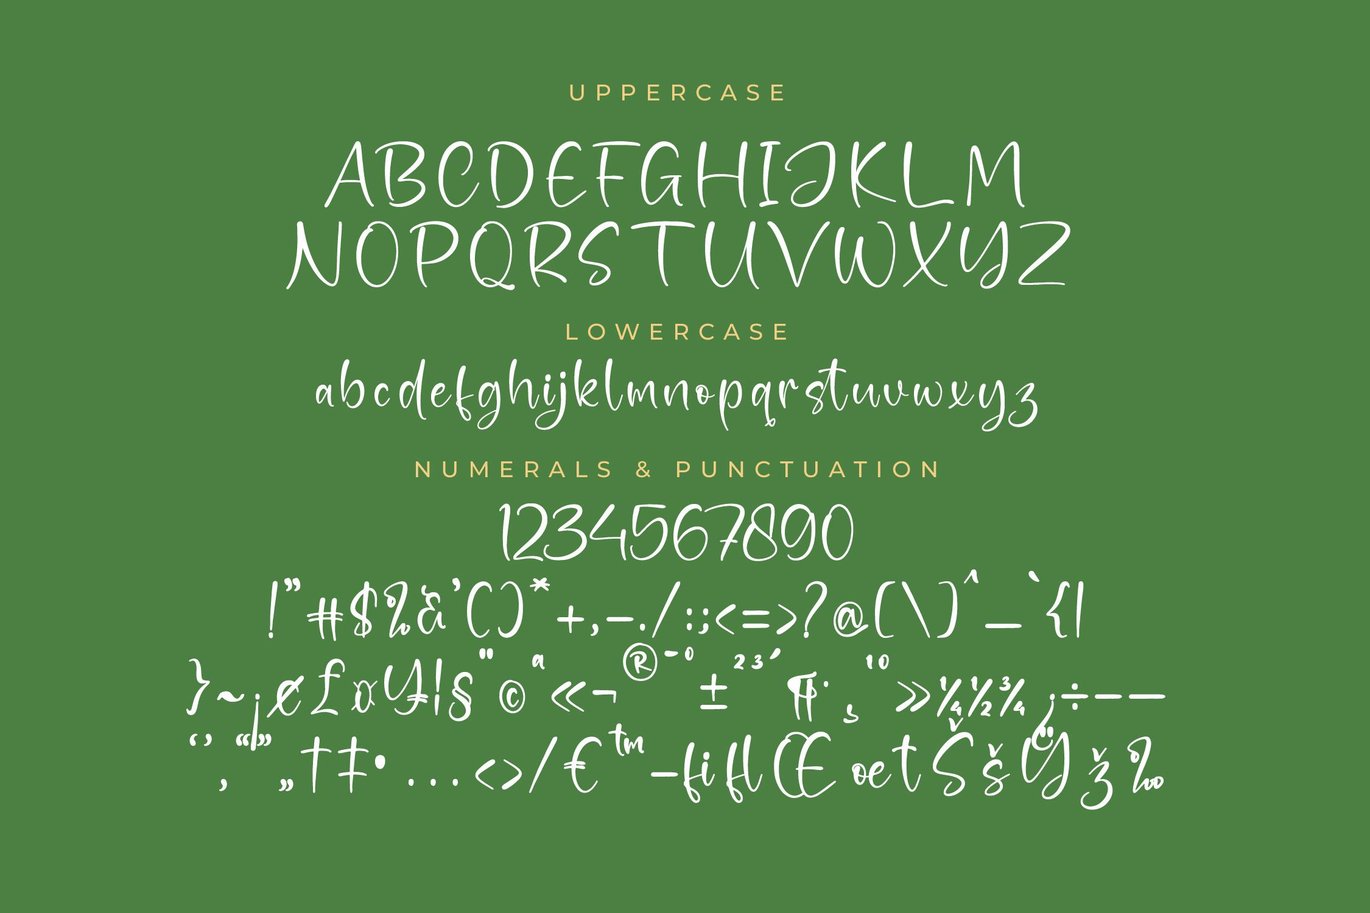 UPPERCASE
ABCDEFGHIJKLM
NOPQRSTUVWXYZ
LOWERCASE
abcdefghijklmnopqrstuvwxyz
NUMERALS & PUNCTUATION
1234567890
!"#$%à'()*+,-./:;<=>?@(\)^_`{|
}~¡¢£¤¥¦§¨©ª«¬®¯°±²³´¶·¸¹º»¼½¾¿÷–—
‘’“”‚„†‡•...‹›⁄€™−fiflŒœtŠšŸž‰